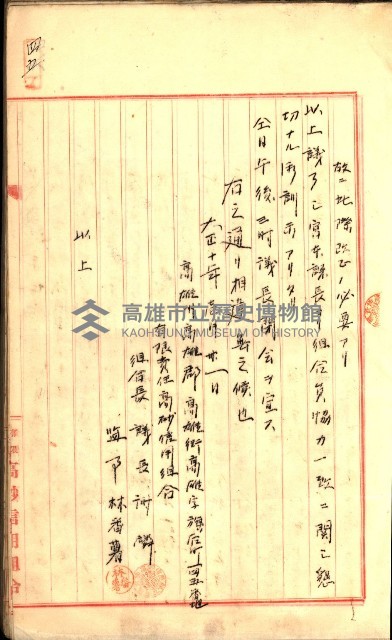 故ニ此際改正ノ必要アリ
以上議了シ宮本課長ヨリ組合員協力一致ニ関シ懇
切ナル御訓示アリタリ
仝日午後三時議長閉会ヲ宣ス
右之通リ相違無之候也
大正十年 月廿一日
高雄州高雄郡高雄街高雄字旗后
有限責任高砂信用組合
組合長 議長
監事 林番薯
以上
高砂信用組合
高雄市立歷史博物館
KAOHSIUNG MUSEUM OF HISTORY